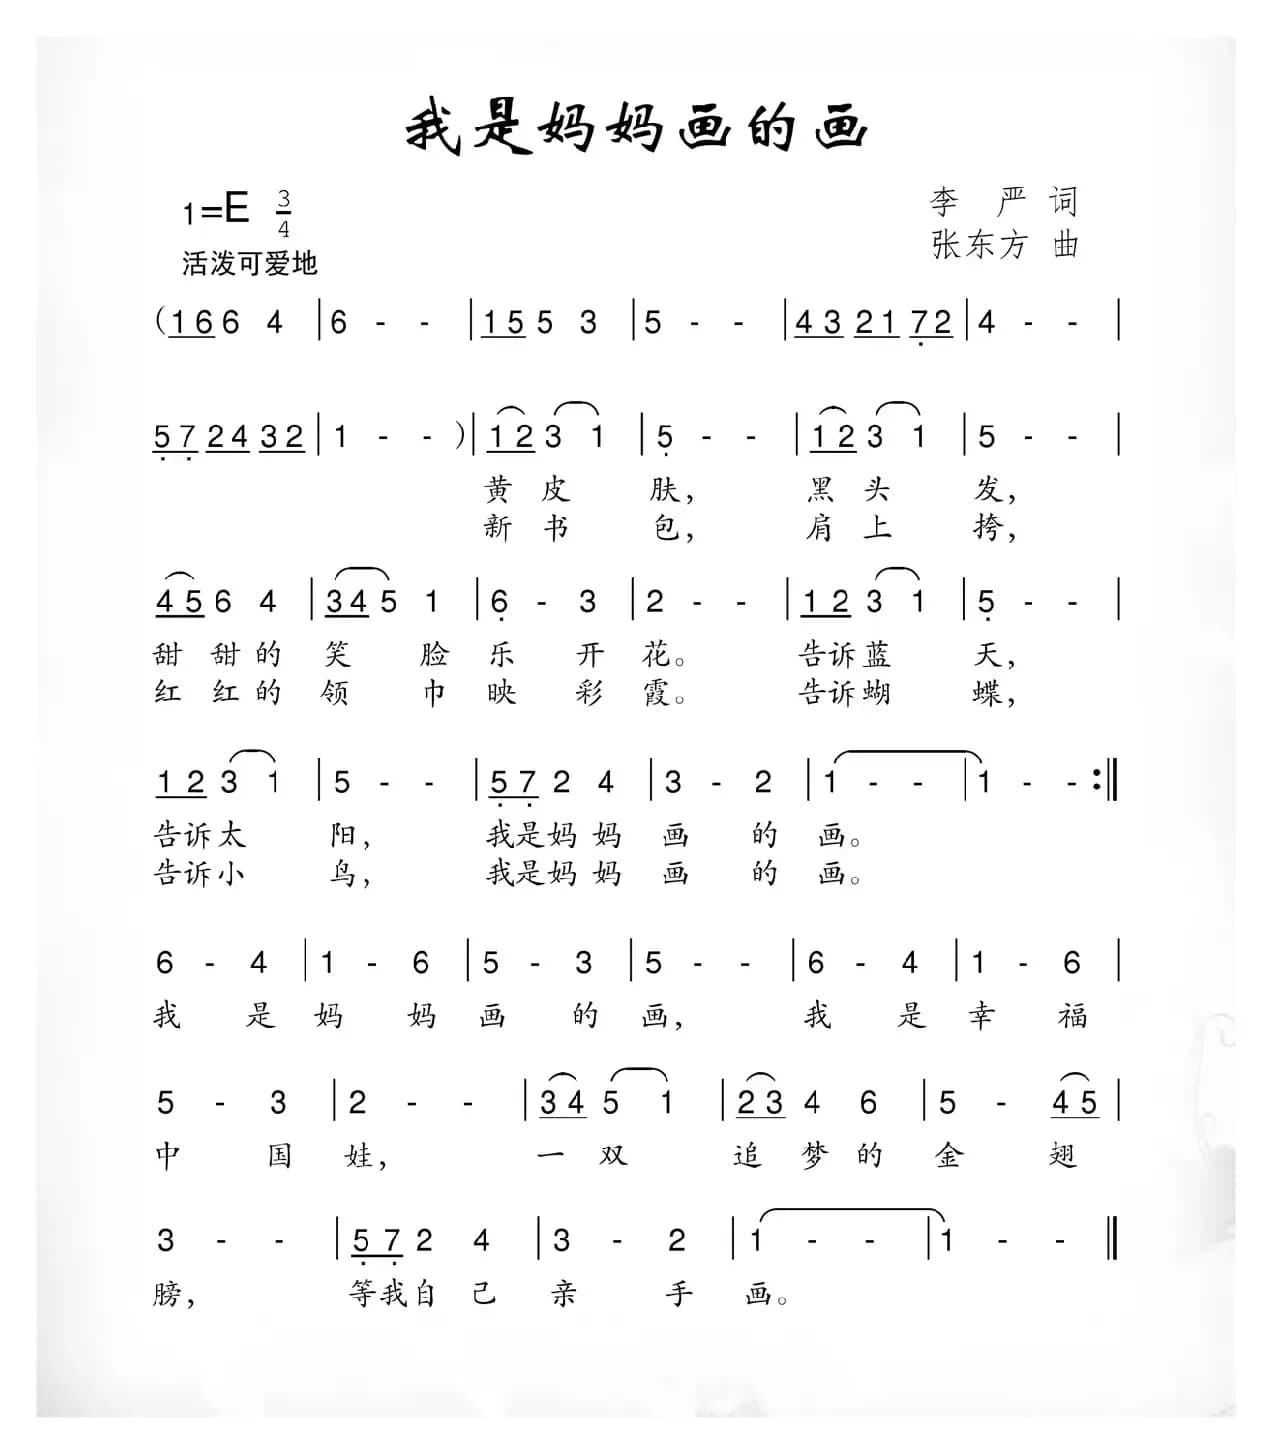 我是妈妈画的画
1=E 3/4
李 严 词
活泼可爱地
张东方 曲
(1 6 6 4 | 6 - - | 1 5 5 3 | 5 - - | 4 3 2 1 7 2 | 4 - - |
5 7 2 4 3 2 | 1 - - ) | 1 2 3 1 | 5 - - | 1 2 3 1 | 5 - - |
黄 皮 肤， 黑 头 发，
新 书 包， 肩 上 挎，
4 5 6 4 | 3 4 5 1 | 6 - 3 | 2 - - | 1 2 3 1 | 5 - - |
甜 甜 的 笑 脸 乐 开 花。 告诉 蓝 天，
红 红 的 领 巾 映 彩 霞。 告诉 蝴 蝶，
1 2 3 1 | 5 - - | 5 7 2 4 | 3 - 2 | 1 - - | 1 - - :||
告诉 太 阳， 我是妈 妈 画 的 画。
告诉 小 鸟， 我是妈 妈 画 的 画。
6 - 4 | 1 - 6 | 5 - 3 | 5 - - | 6 - 4 | 1 - 6 |
我 是 妈 妈 画 的 画， 我 是 幸 福
5 - 3 | 2 - - | 3 4 5 1 | 2 3 4 6 | 5 - 4 5 |
中 国 娃， 一 双 追 梦 的 金 翅
3 - - | 5 7 2 4 | 3 - 2 | 1 - - | 1 - - ||
膀， 等我自 己 亲 手 画。